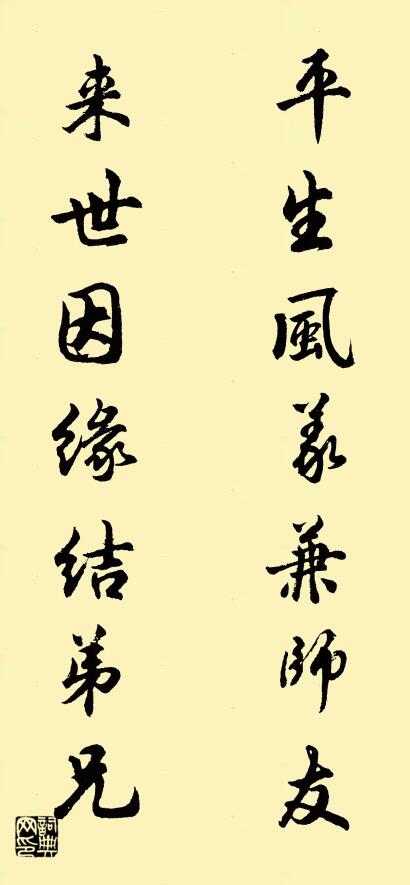 平生風義兼師友
来世因缘结弟兄
詞典网印